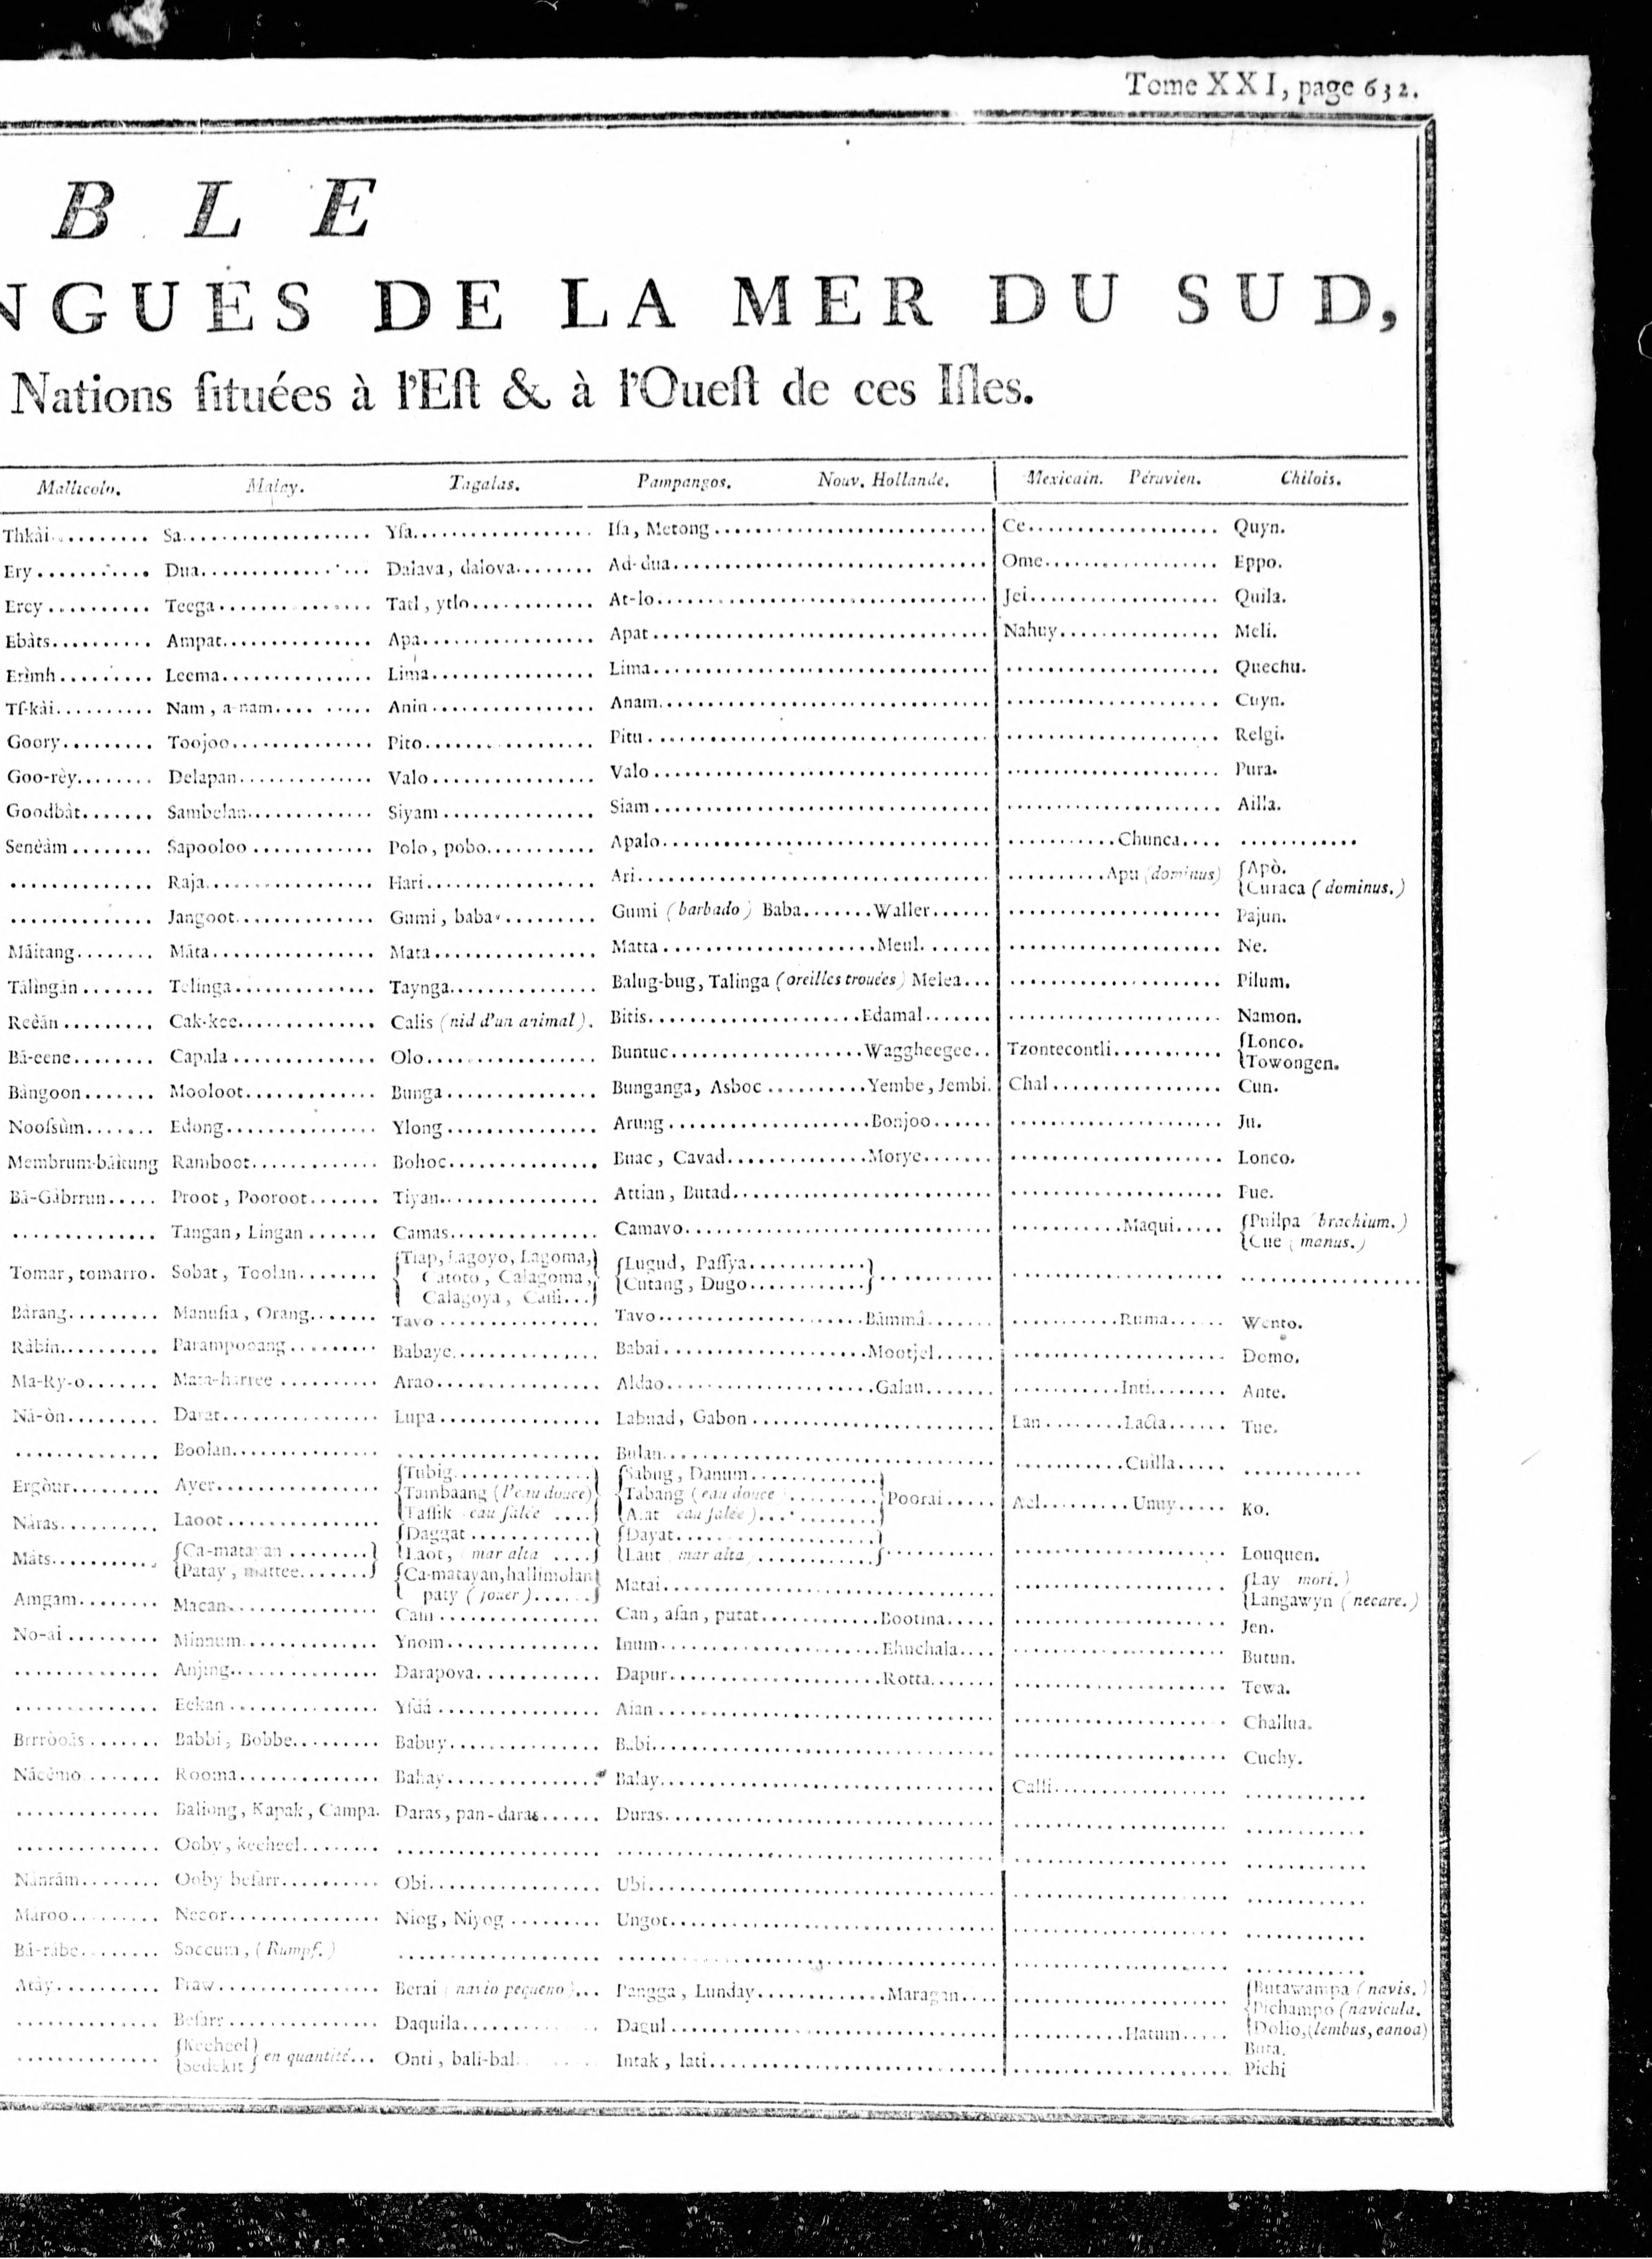 Tome XXI, page 632.
B L E
NGUES DE LA MER DU SUD,
Nations ſituées à l'Eſt & à l'Oueſt de ces Iſles.
Mallicolo. Malay. Tagalas. Pampangos. Nouv. Hollande. Mexicain. Péruvien. Chilois.
Thkài.......... Sa.......... Yſa.......... Iſa, Metong.......... Ce.......... Quyn.
Ery.......... Dua.......... Daiava, daiova.......... Ad-dua.......... Ome.......... Eppo.
Erey.......... Teega.......... Tatl, ytlo.......... At-lo.......... Jei.......... Quila.
Ebàts.......... Ampat.......... Apa.......... Apat.......... Nahuy.......... Meli.
Erìmh.......... Leema.......... Lima.......... Lima.......... Quechu.
Tſ-kài.......... Nam, a-nam.......... Anin.......... Anam.......... Cuyn.
Goory.......... Toojoo.......... Pito.......... Pitu.......... Relgi.
Goo-rèy.......... Delapan.......... Valo.......... Valo.......... Pura.
Goodbàt.......... Sambelan.......... Siyam.......... Siam.......... Ailla.
Senèàm.......... Sapooloo.......... Polo, pobo.......... Apalo.......... Chunca..........
.......... Raja.......... Hari.......... Ari.......... Apu (dominus) {Apò.
{Curaca (dominus.)
.......... Jangoot.......... Gumi, baba.......... Gumi (barbado) Baba.......... Waller.......... Pajun.
Màitang.......... Màta.......... Mata.......... Matta.......... Meul.......... Ne.
Tàlingàn.......... Telinga.......... Taynga.......... Balug-bug, Talinga (oreilles trouées) Melea.......... Pilum.
Reèàn.......... Cak-kee.......... Calis (nid d'un animal). Bitis.......... Edamal.......... Namon.
Bà-eene.......... Capala.......... Olo.......... Buntuc.......... Waggheegee.. Tzontecontli.......... {Lonco.
{Towongen.
Bàngoon.......... Mooloot.......... Bunga.......... Bunganga, Asboc.......... Yembe, Jembi. Chal.......... Cun.
Nooſsùm.......... Edong.......... Ylong.......... Arung.......... Bonjoo.......... Ju.
Membrum-bàitung Ramboot.......... Bohoc.......... Buac, Cavad.......... Morye.......... Lonco.
Bà-Gàbrrun.......... Proot, Pooroot.......... Tiyan.......... Attian, Butad.......... Pue.
.......... Tangan, Lingan.......... Camas.......... Camavo.......... Maqui.......... {Puilpa (brachium.)
{Cue (manus.)
Tomar, tomarro. Sobat, Toolan.......... {Tiap, Lagoyo, Lagoma,} {Lugud, Paſſya..........}
Catoto, Calagoma, {Cutang, Dugo..........}
Calagoya, Caſſi...}
Bàrang.......... Manuſia, Orang.......... Tavo.......... Tavo.......... Bàmmà.......... Runa.......... Wento.
Ràbin.......... Parampooang.......... Babaye.......... Babai.......... Mootjel.......... Domo.
Ma-Ry-o.......... Mata-harree.......... Arao.......... Aldao.......... Galan.......... Inti.......... Ante.
Nà-òn.......... Darat.......... Lupa.......... Labuad, Gabon.......... Lan.......... Lacta.......... Tue.
.......... Boolan.......... Bulan.......... Cuilla..........
Ergòur.......... Ayer.......... {Tubig..........} {Sabug, Danum..........}
{Tambaang (l'eau douce) {Tabang (eau douce).......... Poorai.......... Ael.......... Unuy.......... Ko.
Nàras.......... Laoot.......... {Taſſik (eau ſalée ....} {A.at (eau ſalée)....}
{Daggat..........} {Dayat..........}
{Laot, (mar alta ....} {Laut (mar alta)..........} Louquen.
Màts.......... {Ca-matayan..........} {Patay, mattee..........} {Ca-matayan, hallimolan} paty (jouer)......} Matai.......... {Lay (mori.)
{Langawyn (necare.)
Amgam.......... Macan.......... Cain.......... Can, aſan, putat.......... Bootina.......... Jen.
No-ai.......... Minnum.......... Ynom.......... Inum.......... Ehuchala.......... Butun.
.......... Anjing.......... Darapova.......... Dapur.......... Rotta.......... Tewa.
.......... Eekan.......... Yſdá.......... Aian.......... Challua.
Brrròoàs.......... Babbi, Bobbe.......... Babuy.......... Babi.......... Cuchy.
Nàcèmo.......... Rooma.......... Bahay.......... Balay.......... Calli..........
.......... Baliong, Kapak, Campa. Daras, pan-daras.......... Duras..........
.......... Ooby, kecheel..........
Nànràm.......... Ooby beſarr.......... Obi.......... Ubi..........
Màroo.......... Neeor.......... Niog, Niyog.......... Ungot..........
Bà-ràbe.......... Soccum, (Rumpf.)
Atày.......... Praw.......... Berai (navio pequeno)... Pangga, Lunday.......... Maragan.......... {Butawampa (navis.)
{Pichampo (navicula.
.......... Beſarr.......... Daquila.......... Dagul.......... Hatum.......... {Dolio, (lembus, canoa)
Buta.
.......... {Kecheel} {Sedekit} en quantité... Onti, bali-bal.......... Intak, lati.......... Pichi